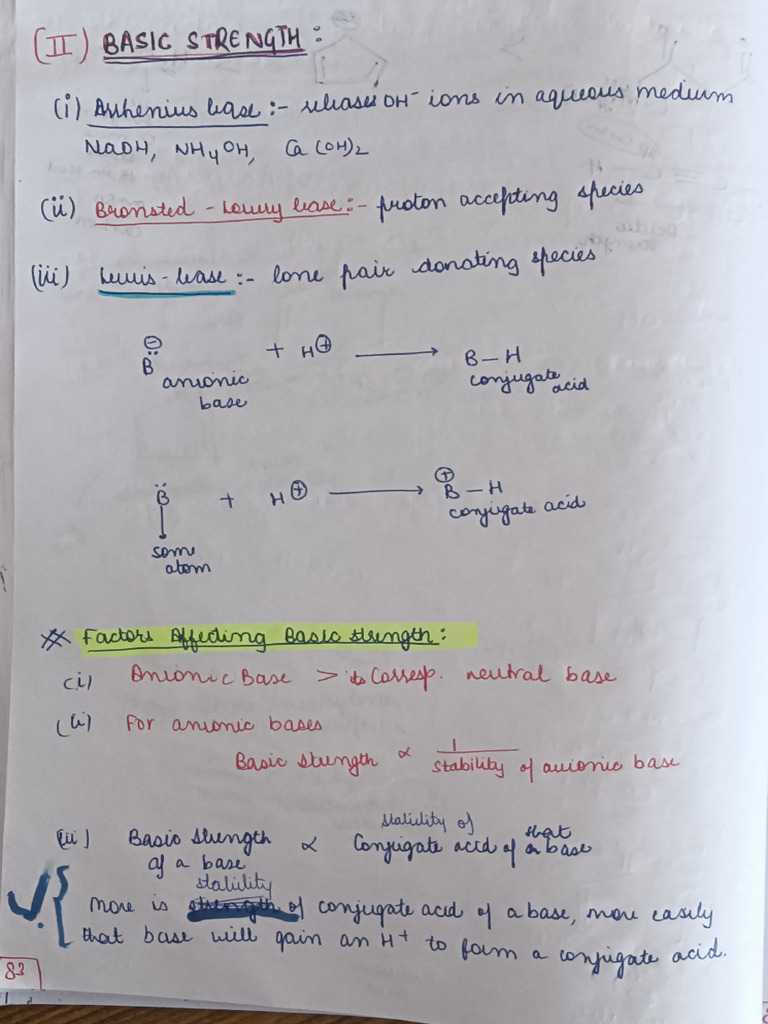 (II) BASIC STRENGTH :
(i) Arrhenius base :- releases OH⁻ ions in aqueous medium
NaOH, NH4OH, Ca(OH)2
(ii) Bronsted - Lowry base :- proton accepting species
(iii) Lewis - base :- lone pair donating species
B̈⊖ + H⊕ → B – H
anionic base conjugate acid
B̈ + H⊕ → B⊕ – H
conjugate acid
some atom
Factors Affecting Basic strength :
(i) Anionic Base > Corresp. neutral base
(ii) For anionic bases
Basic strength ∝ 1 / stability of anionic base
(iii) Basic strength of a base ∝ stability of Conjugate acid of that base
More is stability of conjugate acid of a base, more easily
that base will gain an H+ to form a conjugate acid.
83